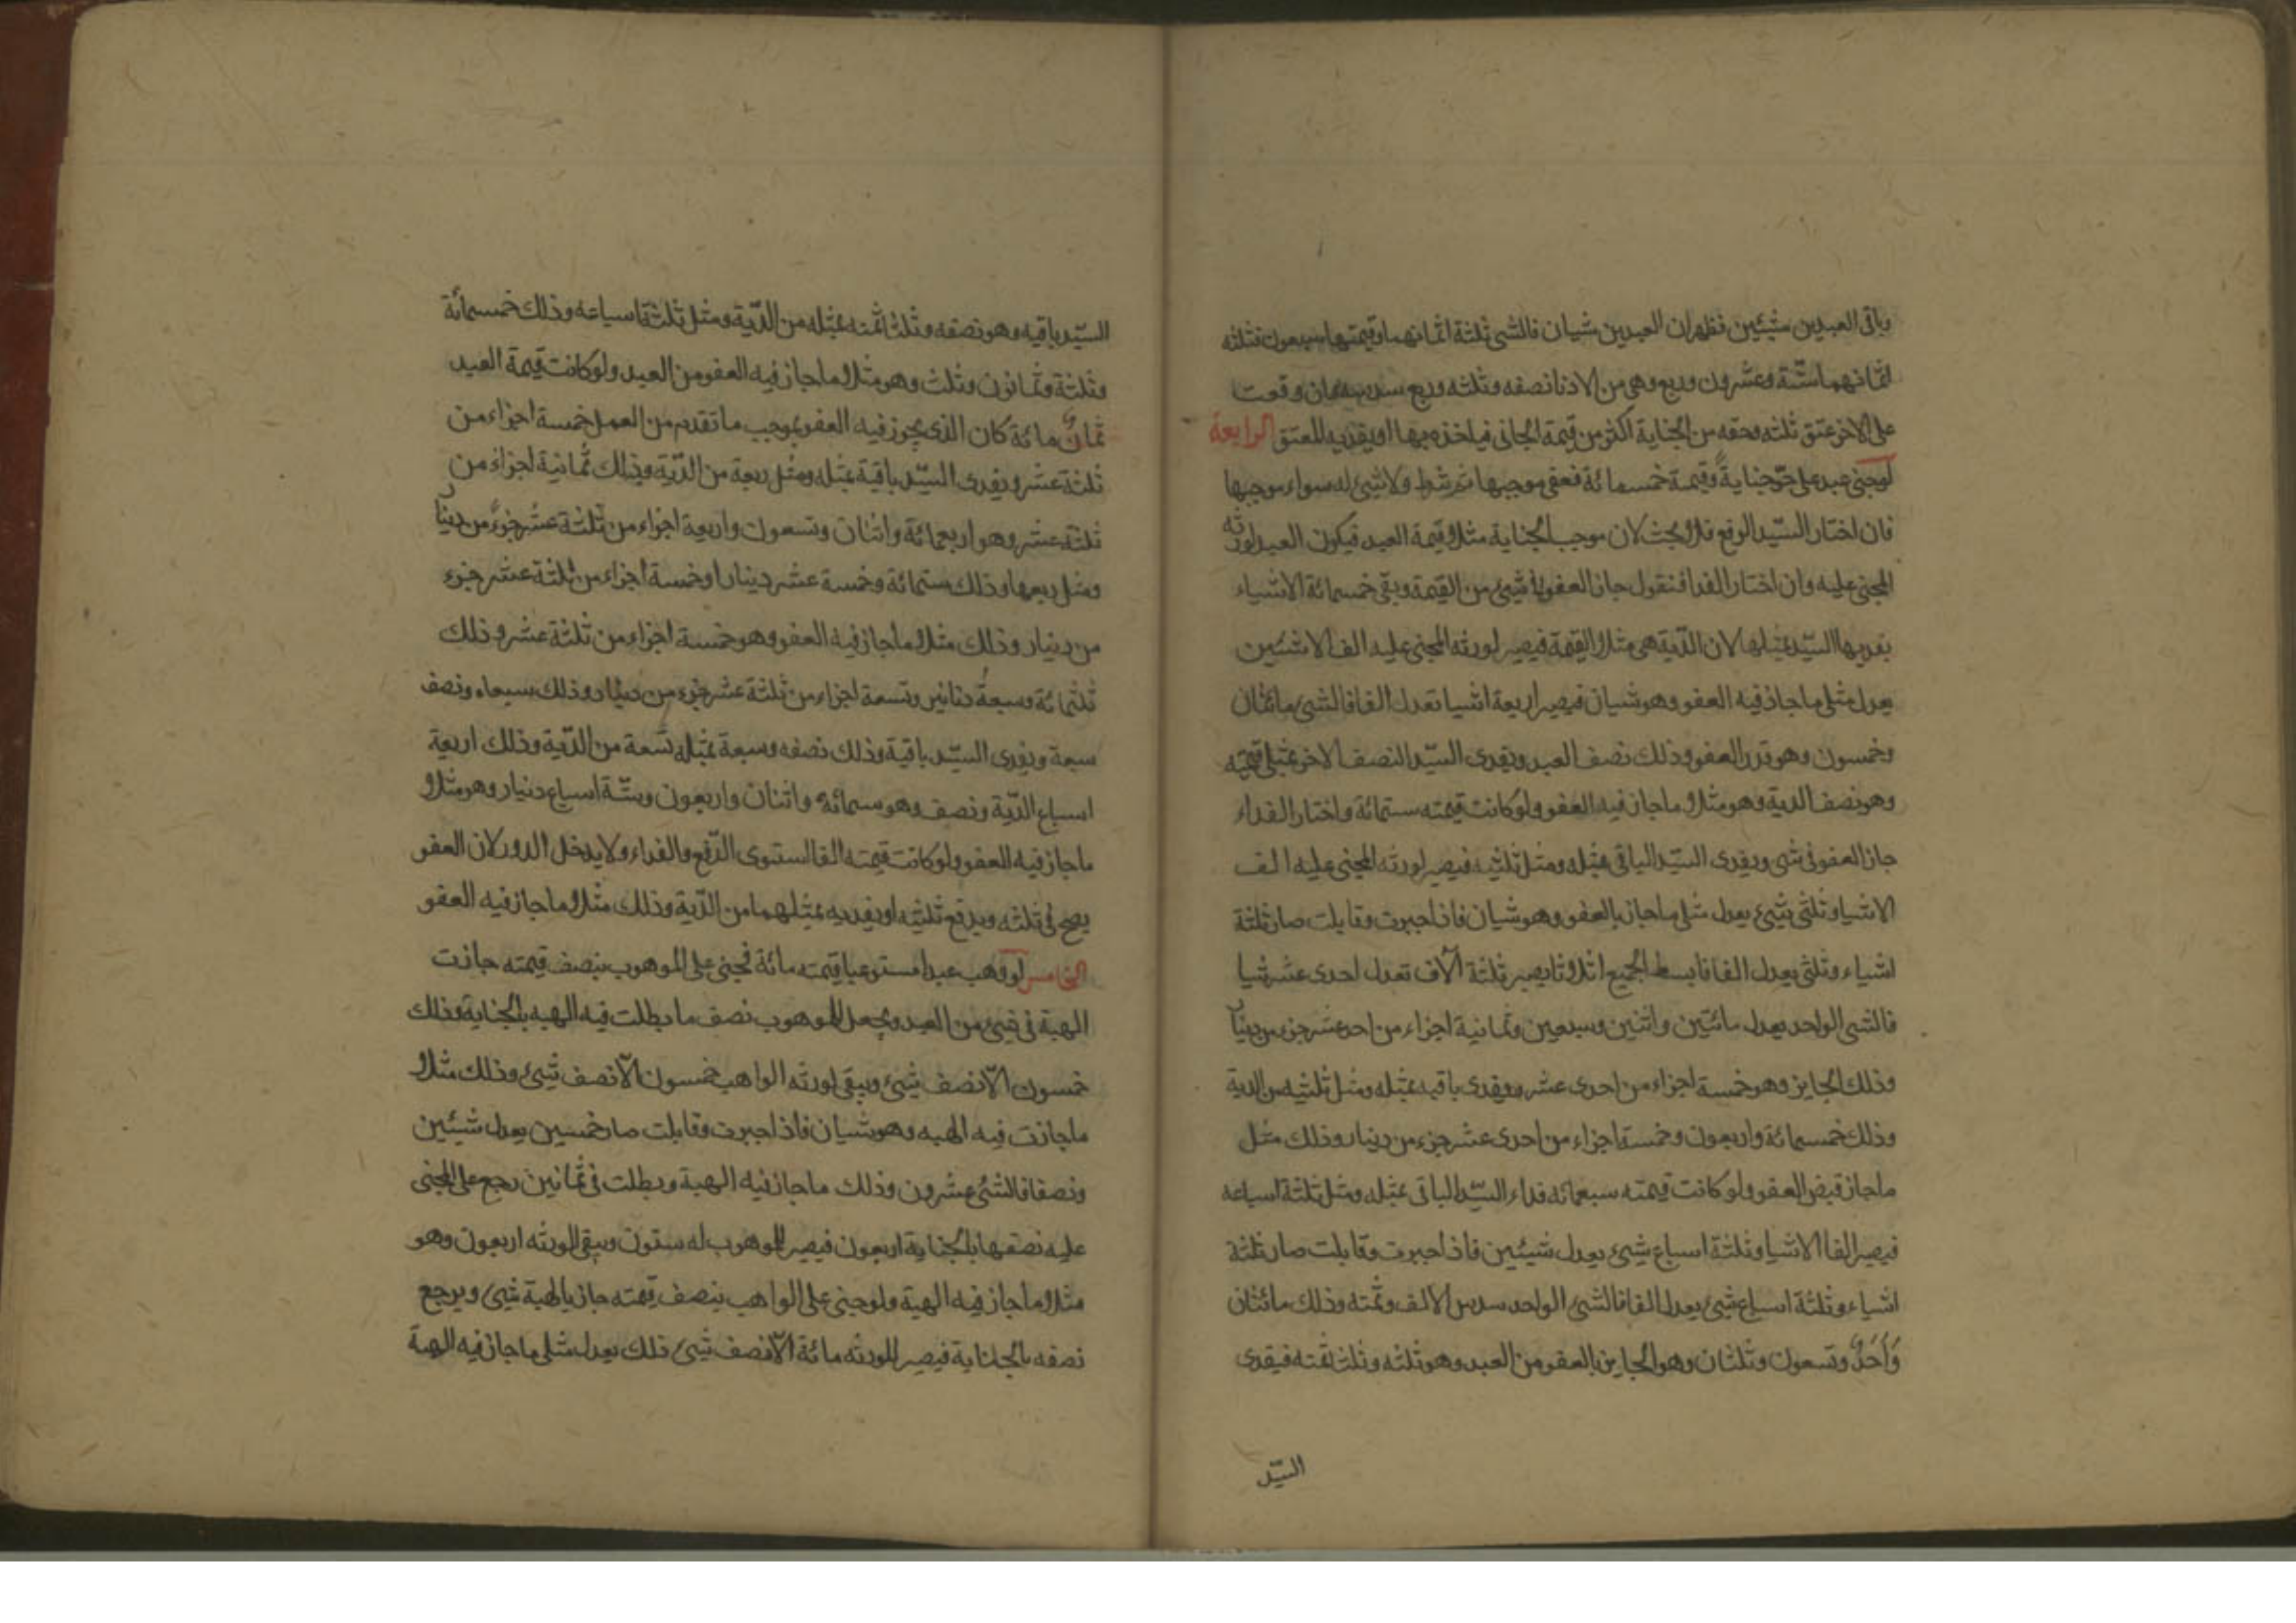 باقى العبدين شيئين فظهر ان العبدين شيان فالشى ثلثة اثمانهما وقيمتها سبعون فثلثه
اثمانهما ستة وعشرون وربع وهى من الادنا نصفه وثلثه وربع سدسه فان وقعت
على الاخر عتق ثلثه وحقه من الجناية اكثر من قيمة الجانى فياخذه بها او يفديه للعتق الرابعة
لو جنى عبد على حر جناية وقيمة خمسمائة فعفى موجبها ثم شط ولا شئ له سواء موجبها
فان اختار السيد الدفع فلا بحث لان موجب الجناية مثلا قيمة العبد فيكون العبد لورثه
المجنى عليه وان اختار الفدا فنقول جاز العفو فى شئ من القيمة وبقى خمسمائة الا شياء
يفديها السيد بمثلها لان الدية هى مثلا القيمة فيصير لورثه المجنى عليه الف الا شئين
يعدل مثلى ما جاز فيه العفو وهو شيان فيصير اربعة اشيا تعدل الفا فالشئ مائتان
وخمسون وهو قدر العفو وذلك نصف العبد ويفدى السيد النصف الاخر بمثلى قيمته
وهو نصف الدية وهو مثلا ما جاز فيه العفو ولو كانت قيمته ستمائة واختار الفداء
جاز العفو فى شى ويفدى السيد الباقى بمثله ومثل ثلثيه فيصير لورثه المجنى عليه الف
الا شيا وثلثى شئ يعدل مثلى ما جاز بالعفو وهو شيان فاذا جبرت وقابلت صار ثلثة
اشياء وثلثى يعدل الفا فابسط الجميع اثلاثا يصير ثلثة آلاف تعدل احدى عشر شيا
فالشئ الواحد يعدل مائتين واثنين وسبعين وثمانية اجزاء من احد عشر جزء من دينار
وذلك الجايز وهو خمسة اجزاء من احدى عشر ويفدى باقيه بمثله ومثل ثلثيه من الدية
وذلك خمسمائة واربعون وخمسة اجزاء من احدى عشر جزء من دينار وذلك مثل
ماجاز فيه العفو ولو كانت قيمته سبعمائه فداء السيد الباقى بمثله ومثل ثلثة اسباعه
فيصير الفا الا شيا وثلثة اسباع شئ يعدل شيئين فاذا جبرت وقابلت صار ثلثة
اشياء وثلثة اسباع شئ يعدل الفا فالشئ الواحد سدس الالف وثمنه وذلك مائتان
وَاَحَدٌ وتسعون وثلثان وهو الجايز بالعفو من العبد وهو ثلثه وثلث ثمنه فيفدى
السيد
السيد باقيه وهو نصفه وثلثا ثمنه بمثله من الدية ومثل ثلثة اسباعه وذلك خمسمائة
وثلثة وثمانون وثلث وهو مثلا ما جاز فيه العفو من العبد ولو كانت قيمة العبد
ثمان مائة كان الذى يجوز فيه العفو بموجب ما تقدم من العمل خمسة اجزاء من
ثلثة عشر ويفدى السيد باقية بمثله ومثل ربعة من الدية وذلك ثمانية اجزاء من
ثلثة عشر وهو اربعمائة واثنان وتسعون واربعة اجزاء من ثلثة عشر جزء من دينار
ومثل ربعها وذلك ستمائة وخمسة عشر دينارا وخمسة اجزاء من ثلثة عشر جزء
من دينار وذلك مثلا ما جاز فيه العفو وهو خمسة اجزاء من ثلثة عشر وذلك
ثلثمائة وسبعة دنانير وتسعة اجزاء من ثلثة عشر جزء من دينار وذلك سبعاه ونصف
سبعة ويفدى السيد باقية وذلك نصفه وسبعة بمثله تسعة من الدية وذلك اربعة
اسباع الدية ونصف وهو سمائة واثنان واربعون وستة اسباع دنيار وهو مثلا
ما جاز فيه العفو ولو كانت قيمته الفا استوى الدفع والفداء ولا يدخل الدور لان العفو
يصح فى ثلثه ويدفع ثلثيه او يفديه بمثلهما من الدية وذلك مثلا ما جاز فيه العفو
الخامس لو وهب عبدا مستوعبا قيمته مائة فجنى على الموهوب بنصف قيمته جازت
الهبة فى شئ من العبد ويجعل للموهوب نصف ما بطلت فيه الهبه بالجناية وذلك
خمسون الا نصف شئ ويبقى لورثه الواهب خمسون الا نصف شئ وذلك مثلا
ما جازت فيه الهبه وهو شيان فاذا جبرت وقابلت صار خمسين يعدل شيئين
ونصفا فالشئ عشرون وذلك ما جاز فيه الهبة وبطلت فى ثمانين رجع على المجنى
عليه نصفها بالجناية اربعون فيصير للموهوب له ستون ويبقى للورثه اربعون وهو
مثلا ما جاز فيه الهبة ولو جنى على الواهب بنصف قيمته جاز بالهبة شئ ويرجع
نصفه بالجناية فيصير للورثه مائة الا نصف شئ ذلك يعدل مثلى ما جاز فيه الهبة